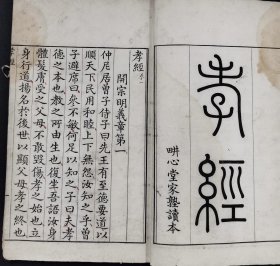 孝經
畊心堂家塾讀本
孝經
開宗明義章第一
仲尼居曾子侍子曰先王有至德要道以
順天下民用和睦上下無怨汝知之乎曾
子避席曰參不敏何足以知之子曰夫孝
德之本也教之所由生也復坐吾語汝身
體髮膚受之父母不敢毀傷孝之始也立
身行道揚名於後世以顯父母孝之終也
孝經